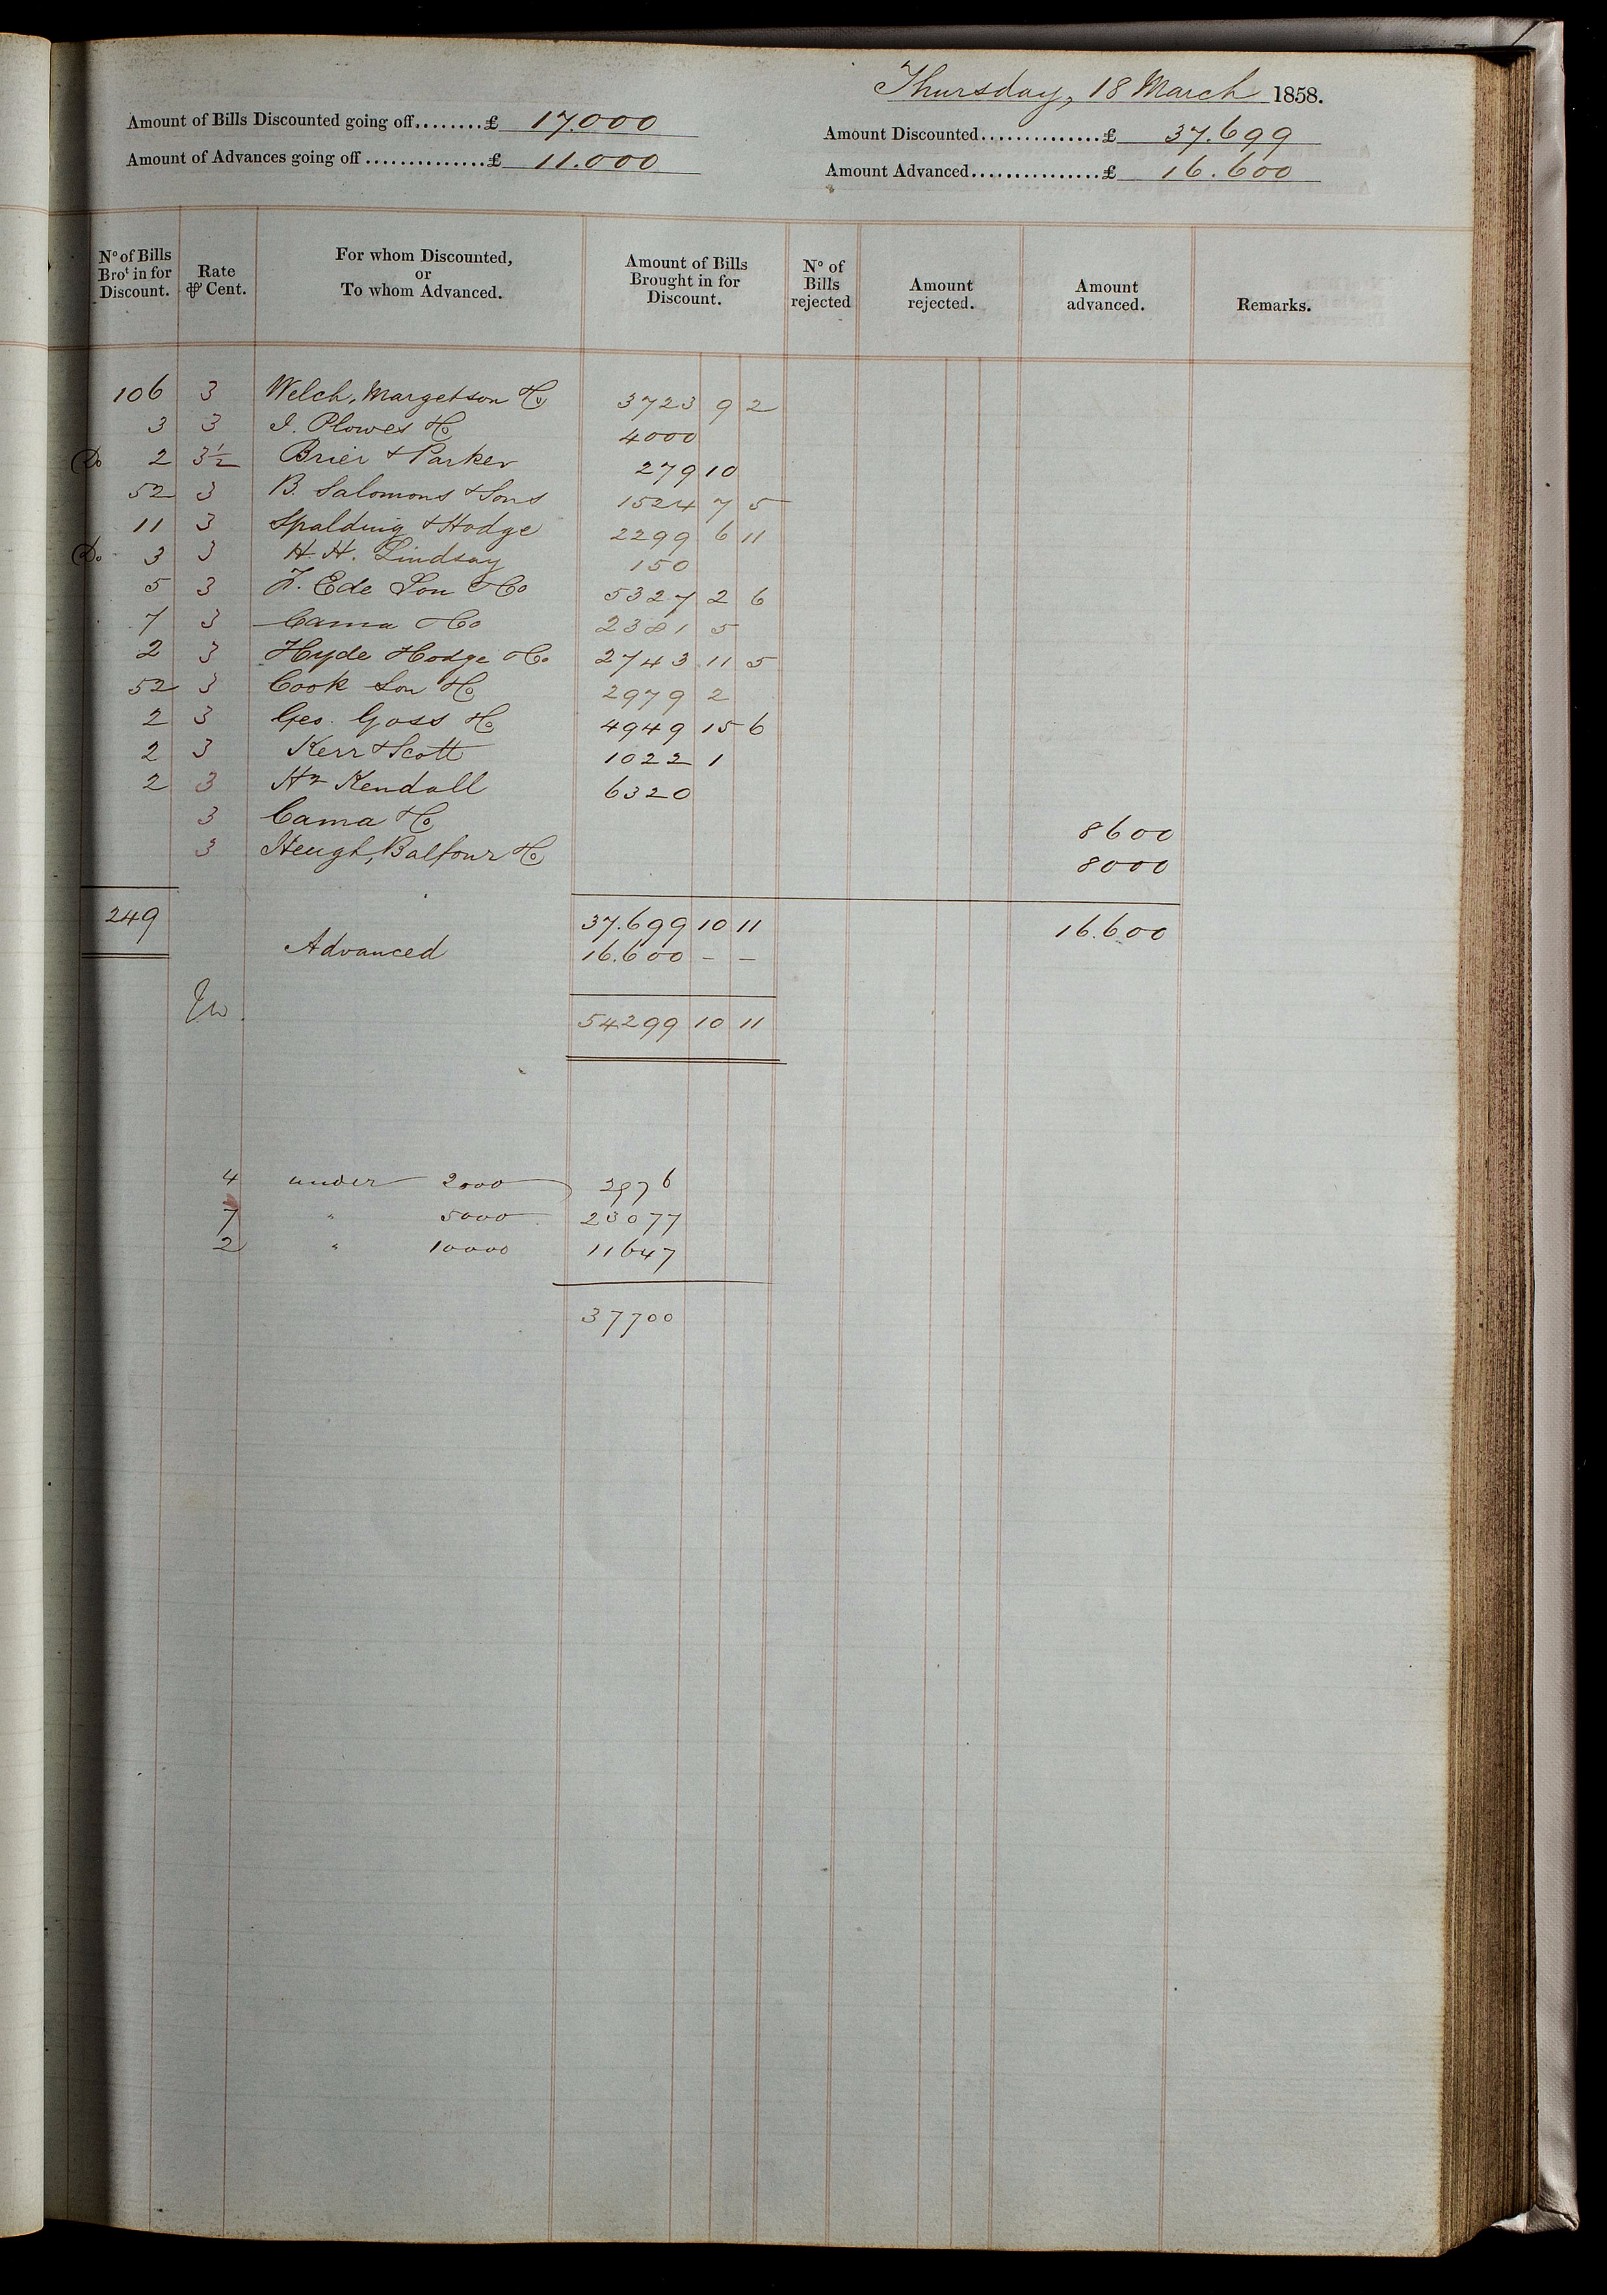 Thursday, 18 March 1858.
Amount of Bills Discounted going off........£ 17.000
Amount Discounted...............£ 37.699
Amount of Advances going off...............£ 11.000
Amount Advanced................£ 16.600
No of Bills Brot in for Discount. Rate ⅌ Cent. For whom Discounted, or To whom Advanced. Amount of Bills Brought in for Discount. No of Bills rejected Amount rejected. Amount advanced. Remarks.
106 3 Welch, Margetson & Co 3723 9 2
3 3 I. Plowes & Co 4000
Do 2 3½ Brier & Parker 279 10
52 3 B. Salomons & Sons 1524 7 5
11 3 Spalding & Hodge 2299 6 11
Do 3 3 H. H. Lindsay 150
5 3 F. Ede Son & Co 5327 2 6
7 3 Cama & Co 2381 5
2 3 Hyde Hodge & Co 2743 11 5
52 3 Cook Son & Co 2979 2
2 3 Geo. Goss & Co 4949 15 6
2 3 Kerr & Scott 1022 1
2 3 Hy Kendall 6320
3 Cama & Co 8600
3 Heugh, Balfour & Co 8000
249 37.699 10 11 16.600
Advanced 16.600 – –
54299 10 11
4 under 2000 2976
7 " 5000 23077
2 " 10000 11647
37700